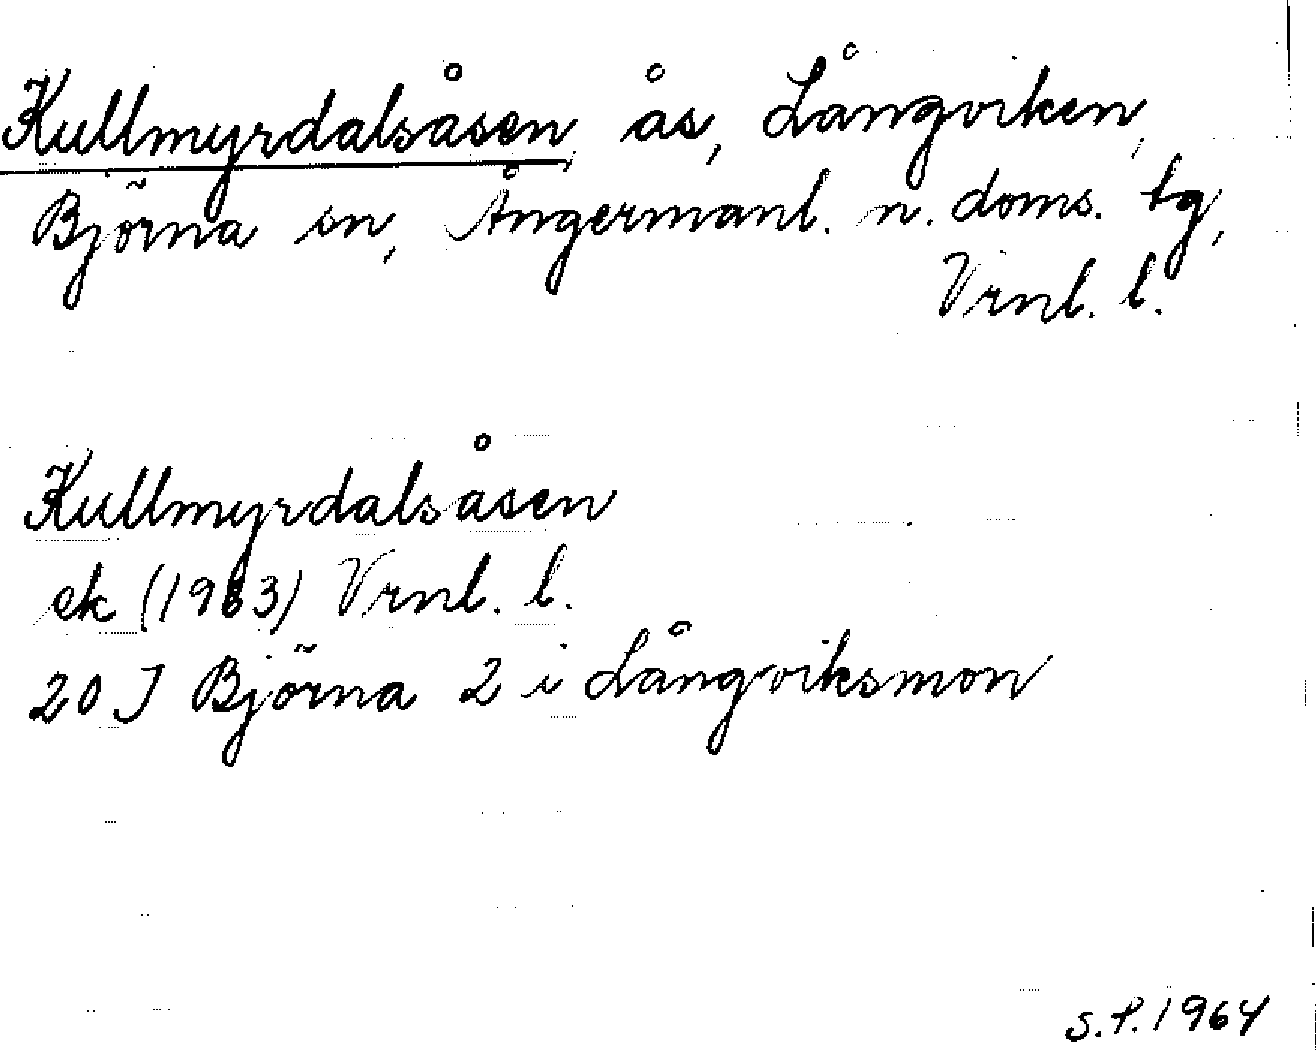 Kullmyrdalsåsen, ås, Långviken,
Björna sn, Ångermanl. n. doms. tg,
Vrnl. l.
Kullmyrdalsåsen
ek (1963) Vrnl. l.
20 J Björna 2 i Långviksmon
S.P. 1964